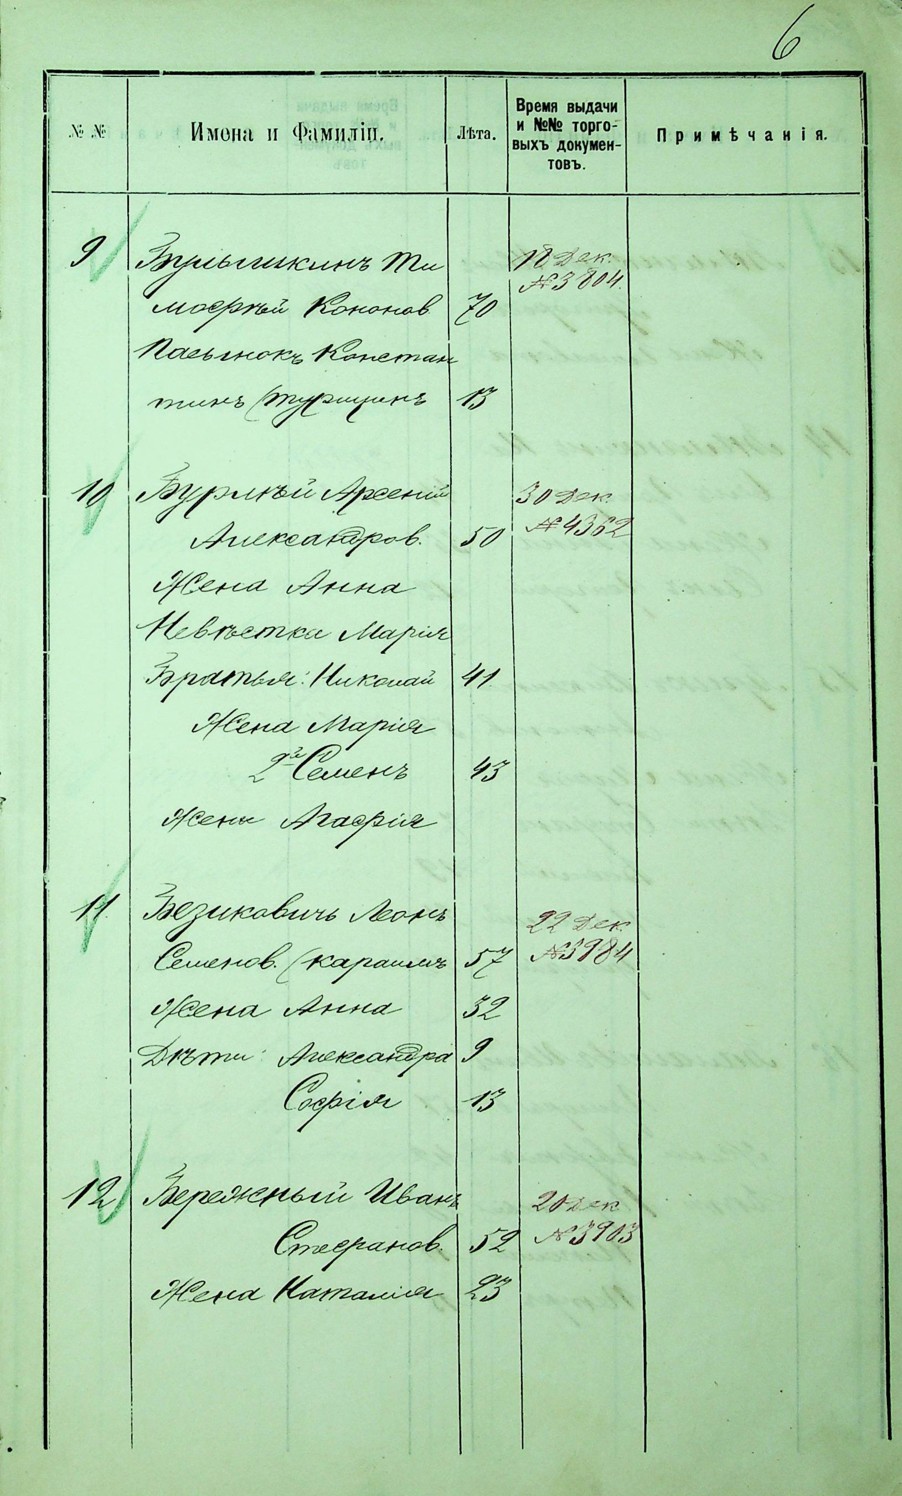 6
№ №
Имена и Фамиліи.
Лѣта.
Время выдачи
и №№ торго-
выхъ докумен-
товъ.
Примѣчанія.
9 Булышкинъ Ти 12 Дек.
мофѣй Кононов 70 № 3804.
Пасынокъ Констан
тинъ 13
10 Бурлѣй Арсеній 30 Дек
Александров. 50 № 4362
Жена Анна
Невѣстка Марія
Братья: Николай 41
Жена Марія
2й Семенъ 43
Жена Агафія
11. Безиковичъ Леонъ 22 Дек.
Семенов. (караимъ 57 № 3984
Жена Анна 32
Дѣти: Александра 9
Софія 13
12 Бережный Иванъ 20 Дек
Стефанов. 52 № 3903
Жена Наталія 23